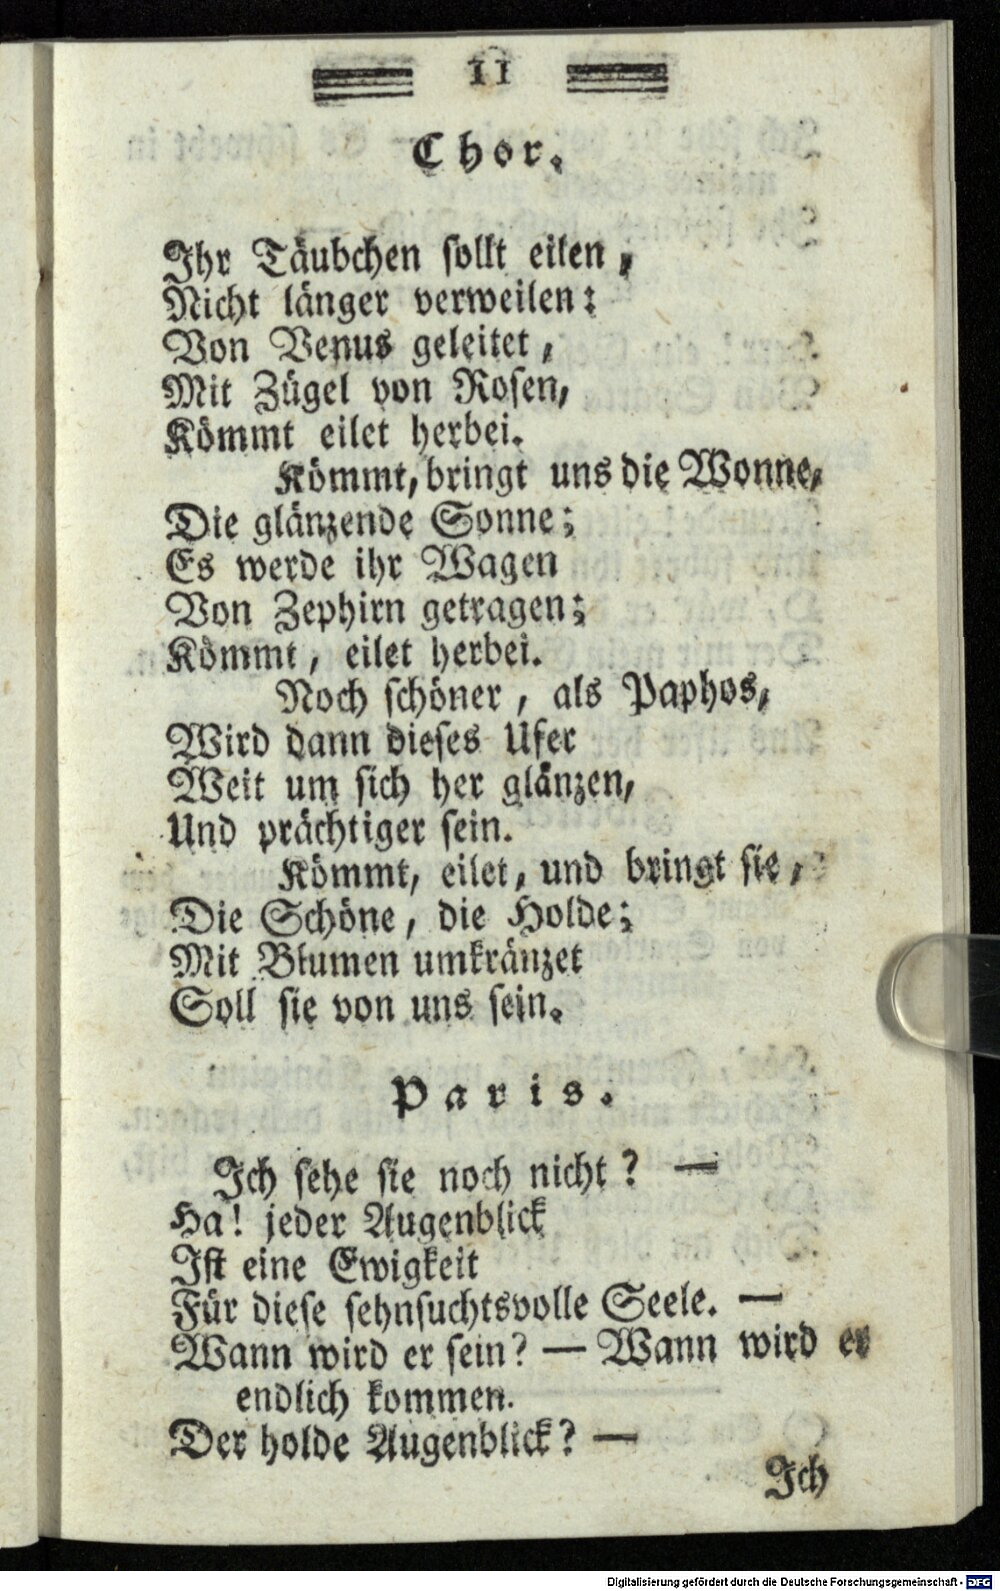 11
Chor.
Ihr Täubchen sollt eilen,
Nicht länger verweilen:
Von Venus geleitet,
Mit Zügel von Rosen,
Kömmt eilet herbei.
Kömmt, bringt uns die Wonne,
Die glänzende Sonne;
Es werde ihr Wagen
Von Zephirn getragen;
Kömmt, eilet herbei.
Noch schöner, als Paphos,
Wird dann dieses Ufer
Weit um sich her glänzen,
Und prächtiger sein.
Kömmt, eilet, und bringt sie,
Die Schöne, die Holde;
Mit Blumen umkränzet
Soll sie von uns sein.
Paris.
Ich sehe sie noch nicht? —
Ha! jeder Augenblick
Ist eine Ewigkeit
Für diese sehnsuchtsvolle Seele. —
Wann wird er sein? — Wann wird er
endlich kommen.
Der holde Augenblick? —
Ich
Digitalisierung gefördert durch die Deutsche Forschungsgemeinschaft - DFG